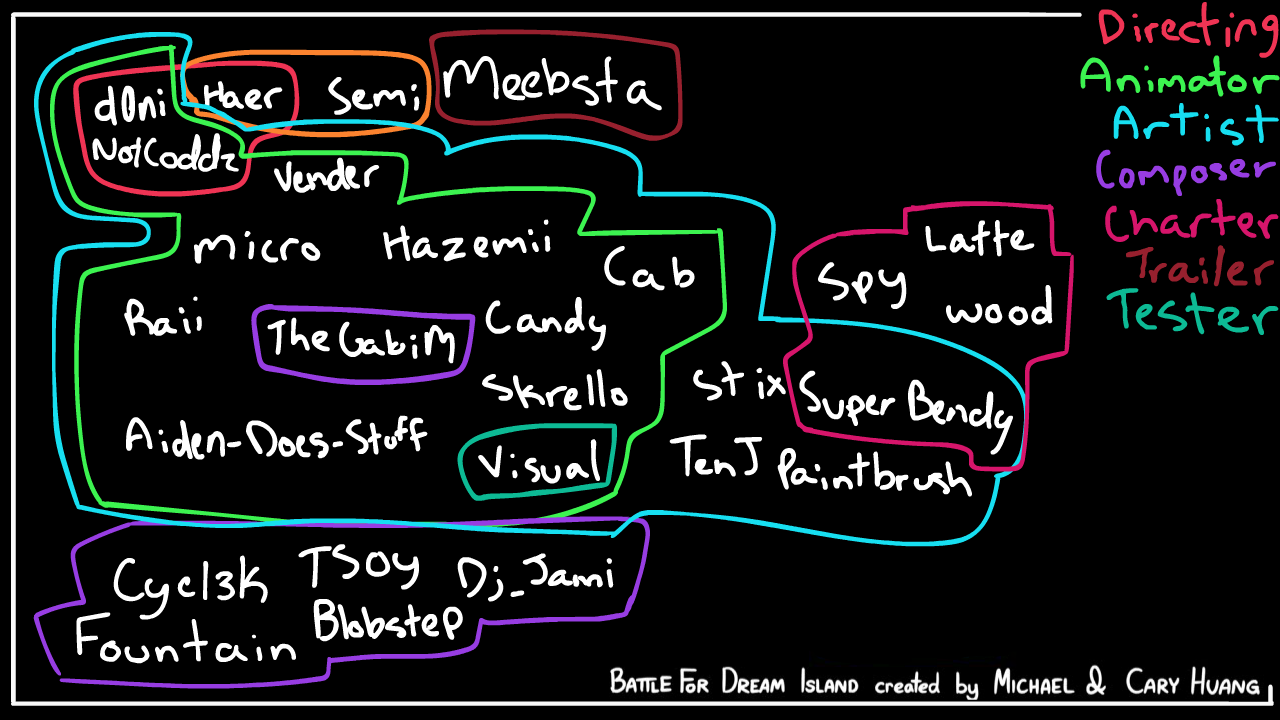 Directing
Animator
Artist
Composer
Charter
Trailer
Tester
d0ni
NotCoddz
Haer
Semi
Meebsta
Vender
Micro
Hazemii
Cab
Raii
TheGabiM
Candy
Skrello
Aiden-Does-Stuff
Visual
Stix
TenJ
Paintbrush
Super Bendy
Spy
Latte
wood
Cycl3k
TSOY
Dj_Jami
Fountain
Blobstep
BATTLE FOR DREAM ISLAND created by MICHAEL & CARY HUANG